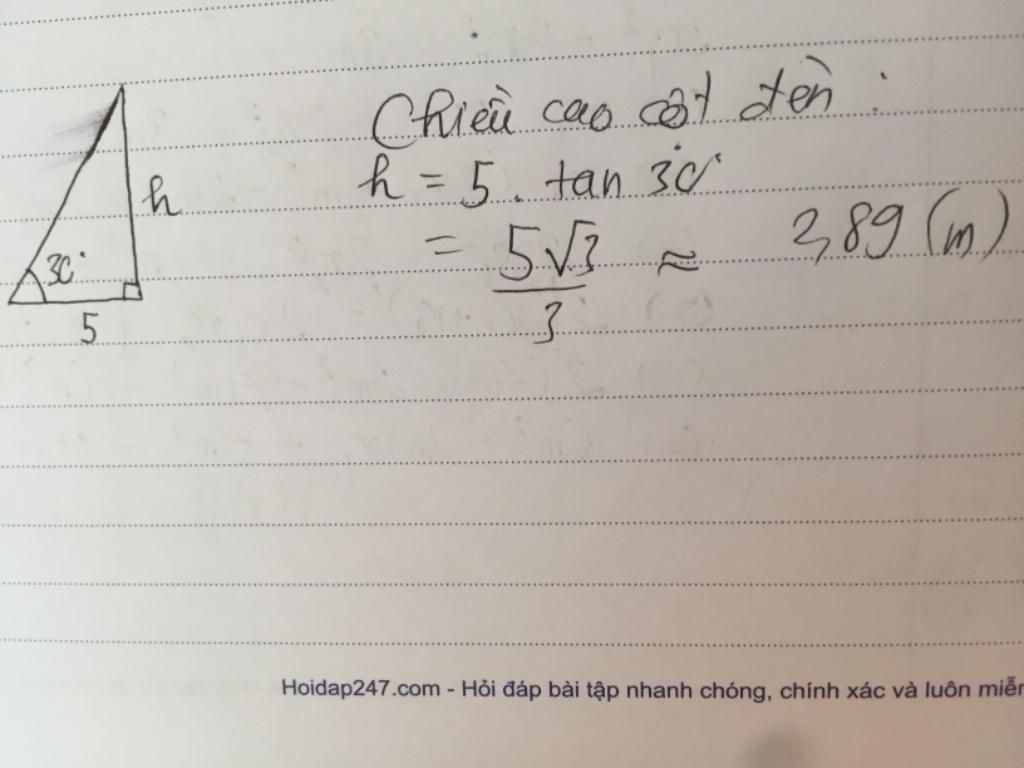 Chiều cao cột đèn :
h = 5 . tan 30°
= 5√3/3 ≈ 2,89 (m)
h
30°
5
Hoidap247.com - Hỏi đáp bài tập nhanh chóng, chính xác và luôn miễn